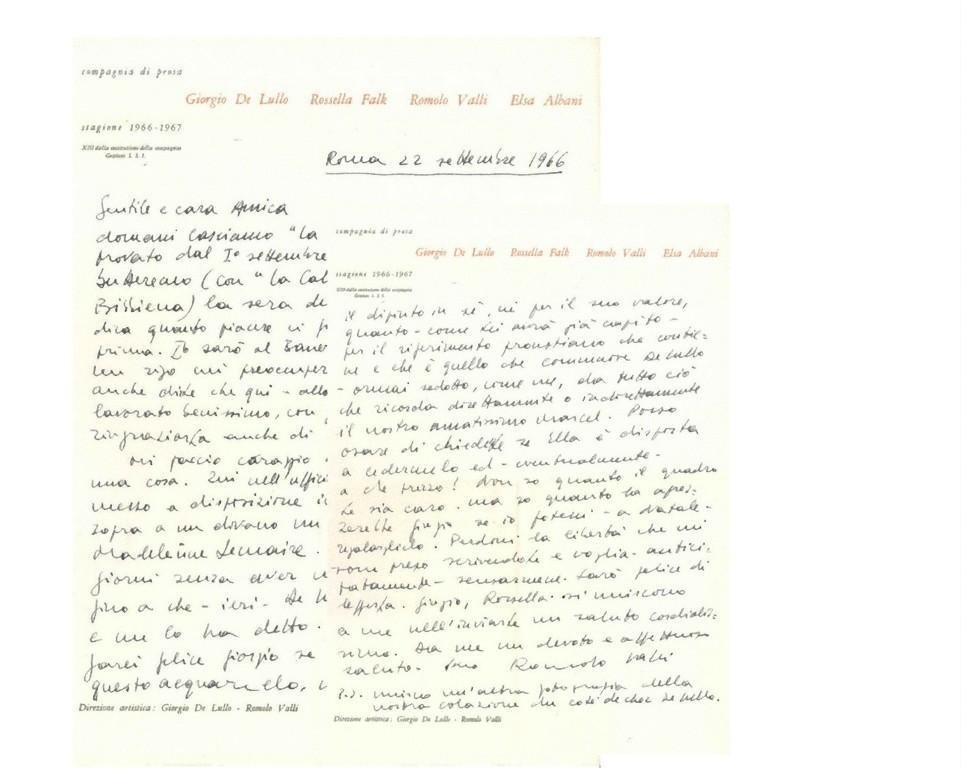 compagnia di prosa
Giorgio De Lullo Rossella Falk Romolo Valli Elsa Albani
stagione 1966-1967
XIII dalla costituzione della compagnia
Gestione S. I. I.
Roma 22 settembre 1966
Gentile e cara Amica
domani lasciamo "La
provato dal I° settembre
butteremo (con "La Cal
Bibbiena) la sera de
dica quanto piacere ci f
prima. Io sarò al
mi preoccuper
anche dirle che qui - allo
lavorato benissimo, con
ringraziarla anche di
mi faccio coraggio
una cosa. Qui nell'uffici
messo a disposizione
sopra a un divano un
Madeleine Lemaire.
giorni senza aver
fino a che - ieri - De
e me lo ha detto.
farei felice Giorgio se
questo acquarello,
Direzione artistica: Giorgio De Lullo - Romolo Valli
compagnia di prosa
Giorgio De Lullo Rossella Falk Romolo Valli Elsa Albani
stagione 1966-1967
XIII dalla costituzione della compagnia
Gestione S. I. I.
il dipinto in sé, né per il suo valore,
quanto - come Lei avrà già capito -
per il riferimento proustiano che contie=
ne e che è quello che commuove De Lullo
- ormai sedotto, come me, da tutto ciò
che ricorda direttamente o indirettamente
il nostro amatissimo Marcel. Posso
osare di chiederle se Ella è disposta
a cedermelo ed - eventualmente -
a che prezzo? Non so quanto il quadro
Le sia caro. Ma so quanto ha apprez=
zerebbe Giorgio se io potessi - a Natale -
regalarglielo. Perdoni la libertà che mi
sono preso scrivendole e voglia - antici=
patamente - scusarmene. Sarò felice di
leggerla. Giorgio, Rossella si uniscono
a me nell'inviarle un saluto cordialis=
simo. Da me un devoto e affettuoso
saluto. Suo Romolo Valli
P.S. unisco un'altra fotografia della
nostra colazione da De Lullo.
Direzione artistica: Giorgio De Lullo - Romolo Valli